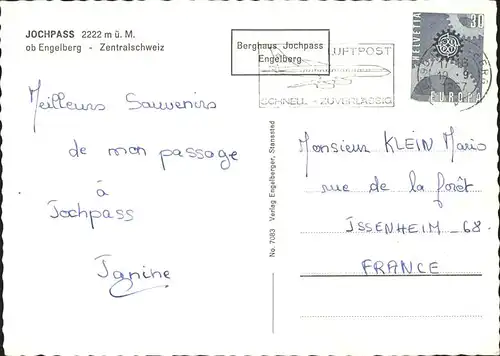 JOCHPASS 2222 m ü. M.
ob Engelberg - Zentralschweiz
Berghaus Jochpass
Engelberg
LUFTPOST
SCHNELL - ZUVERLÄSSIG
HELVETIA
30
EUROPA
Meilleurs Souvenirs
de mon passage
à
Jochpass
Janine
No. 7083 Verlag Engelberger, Stansstad
Monsieur KLEIN Mario
rue de la forêt
ISSENHEIM - 68.
FRANCE